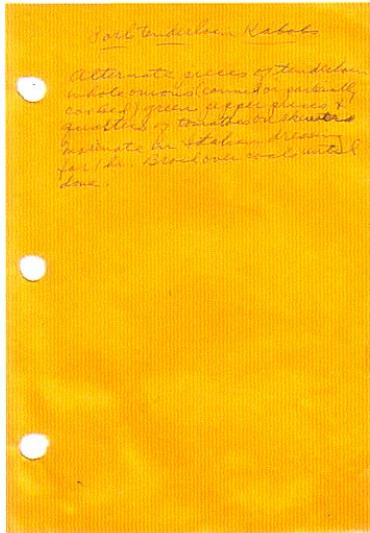 Pork tenderloin Kabobs
Alternate pieces of tenderloin
whole onions (canned or partially
cooked) green pepper pieces &
quarters of tomatoes on skewers
marinate in Italian dressing
for 1 hr. Broil over coals until
done.